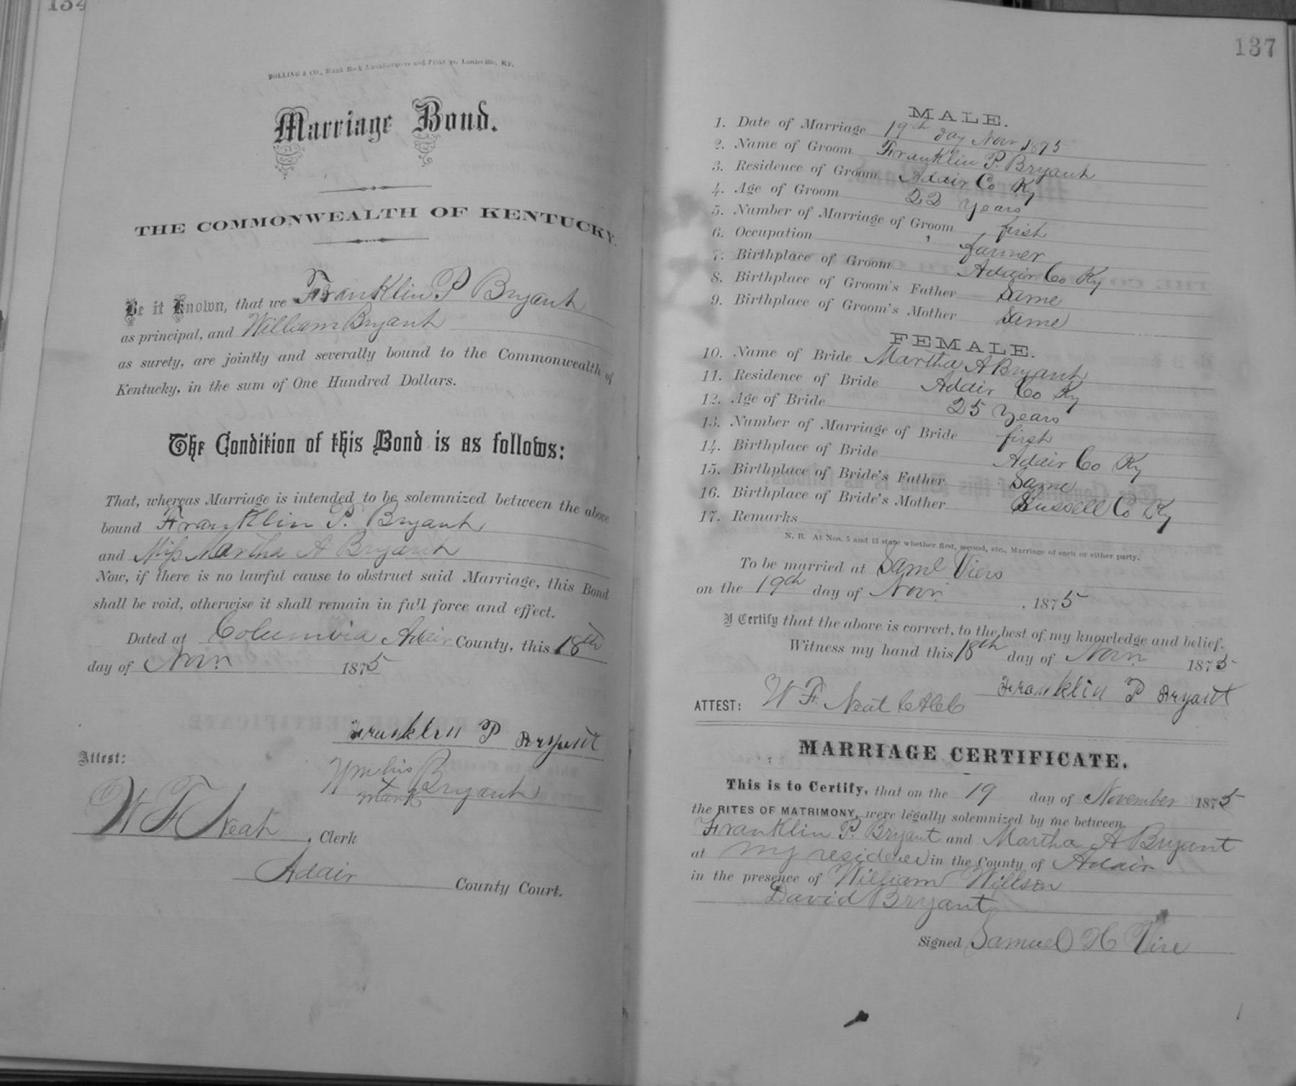 134
BOLLING & CO., Blank Book Manufacturers and Printers, Louisville, Ky.
Marriage Bond.
THE COMMONWEALTH OF KENTUCKY.
Be it Known, that we Franklin P Bryant
as principal, and William Bryant
as surety, are jointly and severally bound to the Commonwealth of
Kentucky, in the sum of One Hundred Dollars.
The Condition of this Bond is as follows:
That, whereas Marriage is intended to be solemnized between the above
bound Franklin P. Bryant
and Miss Martha A Bryant
Now, if there is no lawful cause to obstruct said Marriage, this Bond
shall be void, otherwise it shall remain in full force and effect.
Dated at Columbia Adair County, this 18th
day of Novr. 1875
Franklin P Bryant
Attest:
Wm his B
x
mark Bryant
W F Neat, Clerk
Adair County Court.
137
MALE.
1. Date of Marriage 19th day Novr 1875
2. Name of Groom Franklin P. Bryant
3. Residence of Groom Adair Co Ky
4. Age of Groom 22 Years
5. Number of Marriage of Groom first
6. Occupation farmer
7. Birthplace of Groom Adair Co Ky
8. Birthplace of Groom's Father Same
9. Birthplace of Groom's Mother Same
FEMALE.
10. Name of Bride Martha A Bryant
11. Residence of Bride Adair Co Ky
12. Age of Bride 25 Years
13. Number of Marriage of Bride first
14. Birthplace of Bride Adair Co Ky
15. Birthplace of Bride's Father Same
16. Birthplace of Bride's Mother Russell Co Ky
17. Remarks
N. B. At Nos. 5 and 13 state whether first, second, etc., Marriage of each or either party.
To be married at Saml Viers
on the 19th day of Novr. , 1875
I Certify that the above is correct, to the best of my knowledge and belief.
Witness my hand this 18th day of Novr. 1875
Franklin P Bryant
ATTEST: W F. Neat
MARRIAGE CERTIFICATE.
This is to Certify, that on the 19 day of November 1875
the RITES OF MATRIMONY, were legally solemnized by me between
Franklin P. Bryant and Martha A Bryant
at my residence in the County of Adair
in the presence of William Willson
David Bryant
Signed Samuel H Vire